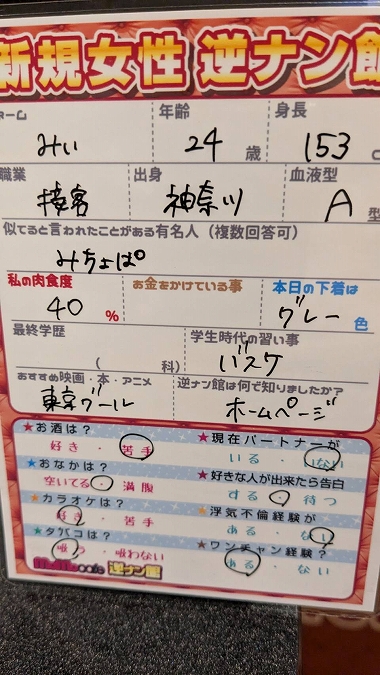 新規女性 逆ナン館
ーム 年齢 身長
みぃ 24 歳 153 c
職業 出身 血液型
接客 神奈川 A 型
似てると言われたことがある有名人(複数回答可)
みちょぱ
私の肉食度 お金をかけている事 本日の下着は
40 % グレー 色
最終学歴 学生時代の習い事
( 科) バスケ
おすすめ映画・本・アニメ 逆ナン館は何で知りましたか?
東京グール ホームページ
★お酒は? ★現在パートナーが
好き ・ 苦手 いる ・ いない
★おなかは? ★好きな人が出来たら告白
空いてる ・ 満腹 する ・ 待つ
★カラオケは? ★浮気不倫経験が
好き ・ 苦手 ある ・ ない
★タバコは? ★ワンチャン経験?
吸う ・ 吸わない ある ・ ない
cafe 逆ナン館